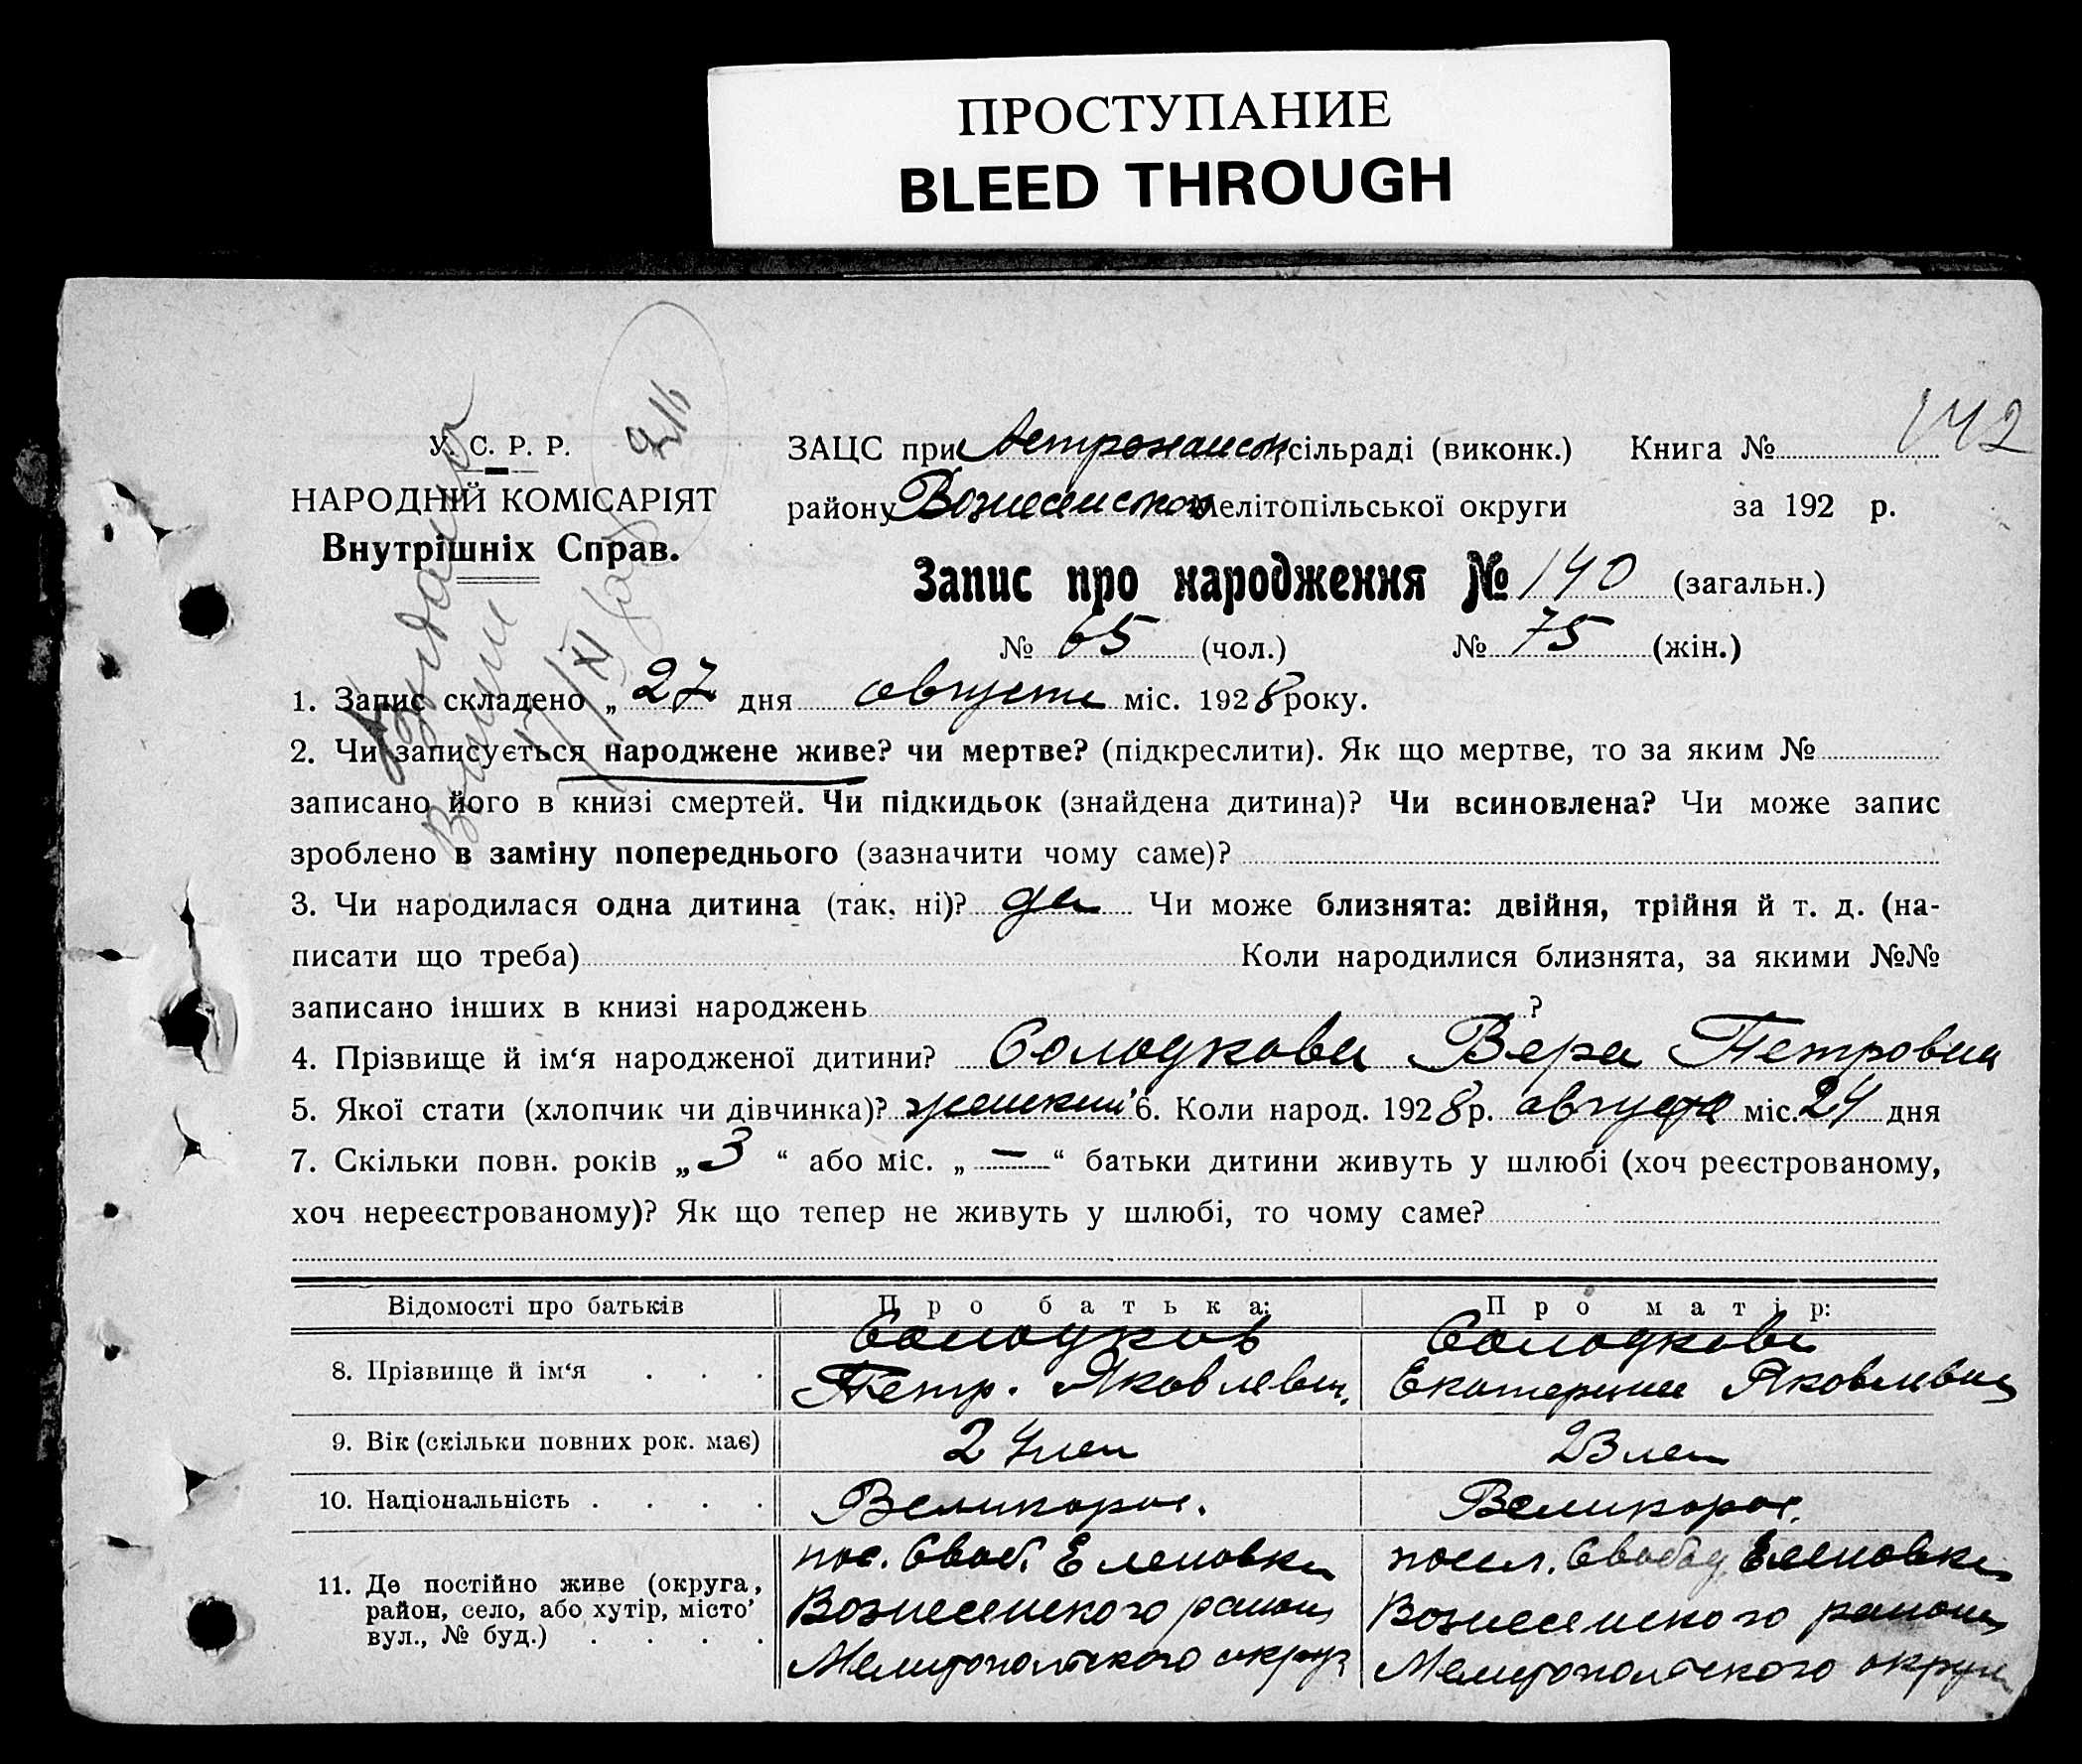 ПРОСТУПАНИЕ
BLEED THROUGH
142
У. С. Р. Р.
НАРОДНІЙ КОМІСАРІЯТ
Внутрішніх Справ.
ЗАЦС при Астраханск. сільраді (виконк.) Книга №
району Вознесенского Мелітопільської округи за 192 р.
Запис про народження № 140 (загальн.)
№ 65 (чол.) № 75 (жін.)
1. Запис складено „ 27 дня августа міс. 1928 року.
2. Чи записується народжене живе? чи мертве? (підкреслити). Як що мертве, то за яким №
записано його в книзі смертей. Чи підкидьок (знайдена дитина)? Чи всиновлена? Чи може запис
зроблено в заміну попереднього (зазначити чому саме)?
3. Чи народилася одна дитина (так, ні)? да Чи може близнята: двійня, трійня й т. д. (на-
писати що треба) Коли народилися близнята, за якими №№
записано інших в книзі народжень ?
4. Прізвище й ім‘я народженої дитини? Солодкова Вера Петровна
5. Якої стати (хлопчик чи дівчинка)? женский 6. Коли народ. 1928 р. августа міс. 24 дня
7. Скільки повн. років „ 3 “ або міс. „ — “ батьки дитини живуть у шлюбі (хоч реєстрованому,
хоч нереєстрованому)? Як що тепер не живуть у шлюбі, то чому саме?
Відомості про батьків Про батька: Про матір:
Солодков Солодкова
8. Прізвище й ім‘я . . . Петр. Яковлевич. Екатерина Яковлевна
9. Вік (скільки повних рок. має) 24 лет 23 лет
10. Національність . . . . Великорос. Великорос.
пос. Своб. Еленовка посел. Свобод. Еленовка
11. Де постійно живе (округа,
район, село, або хутір, місто Вознесенского района Вознесенского района
вул., № буд.) . . . . Мелитопольского округа Мелитопольского округа